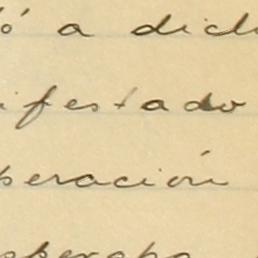 ó a dich
ifestado
peración